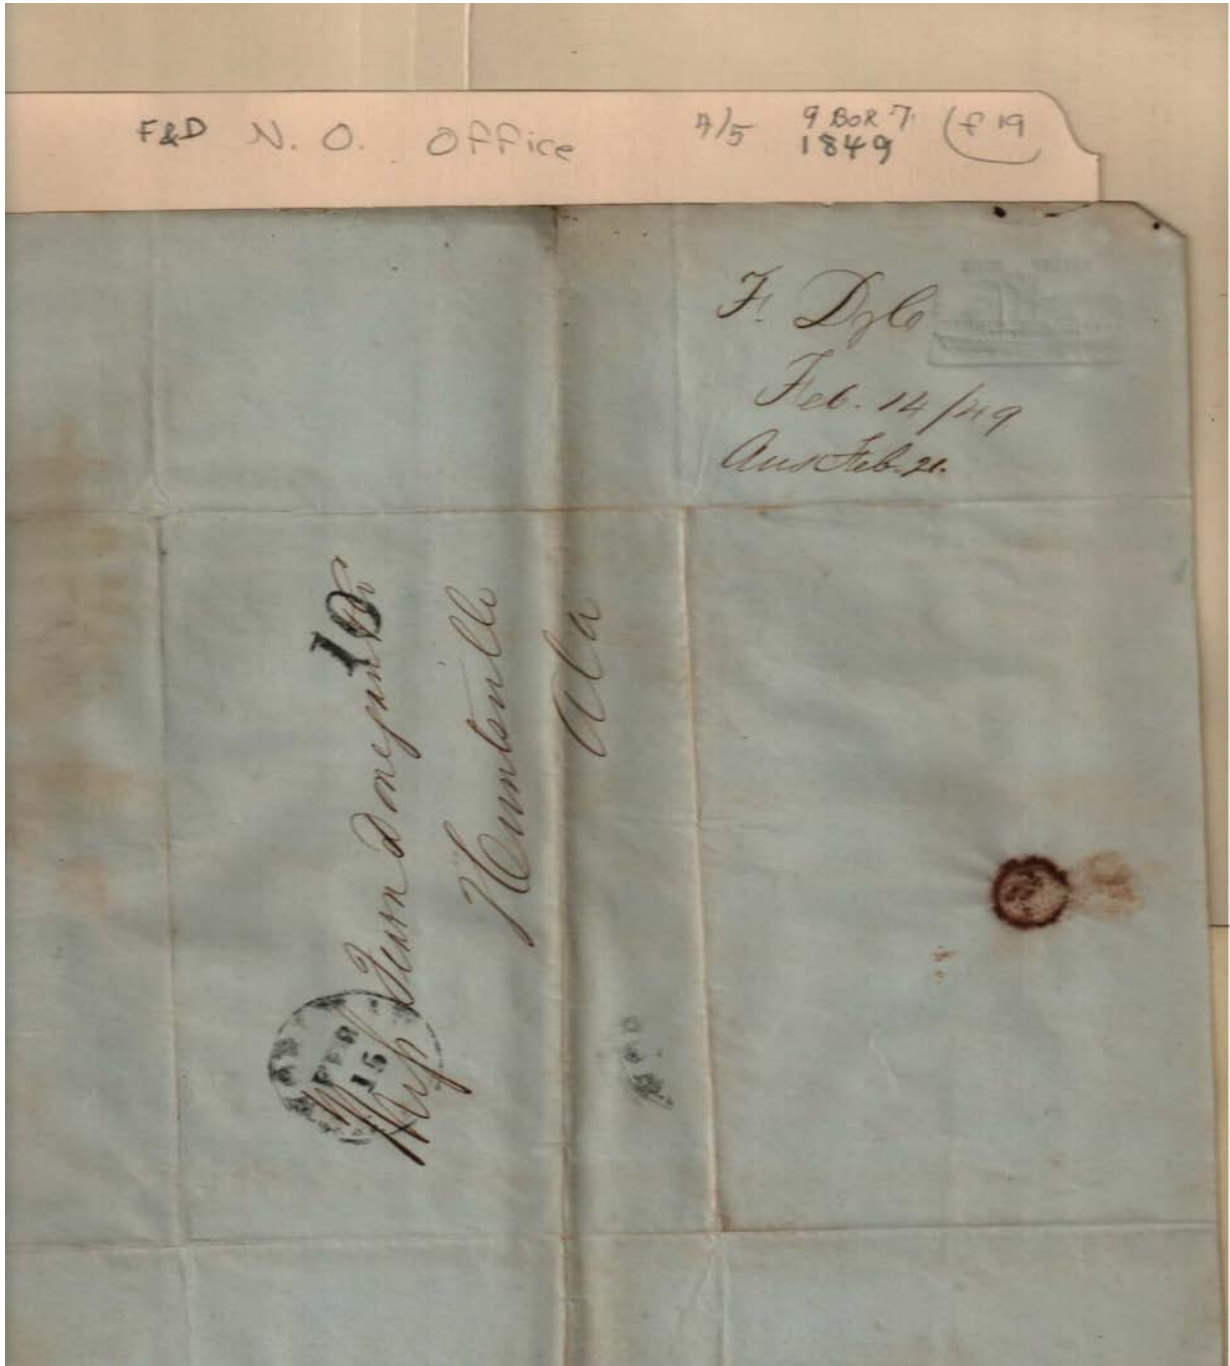 F&D N. O. Office A/5 9 BOR 7. (f 19
1849
F. D & Co
Feb. 14/49
Ans Feb. 21.
10
Messrs Fearn Donegan & Co
Huntsville
Ala
FEB
15